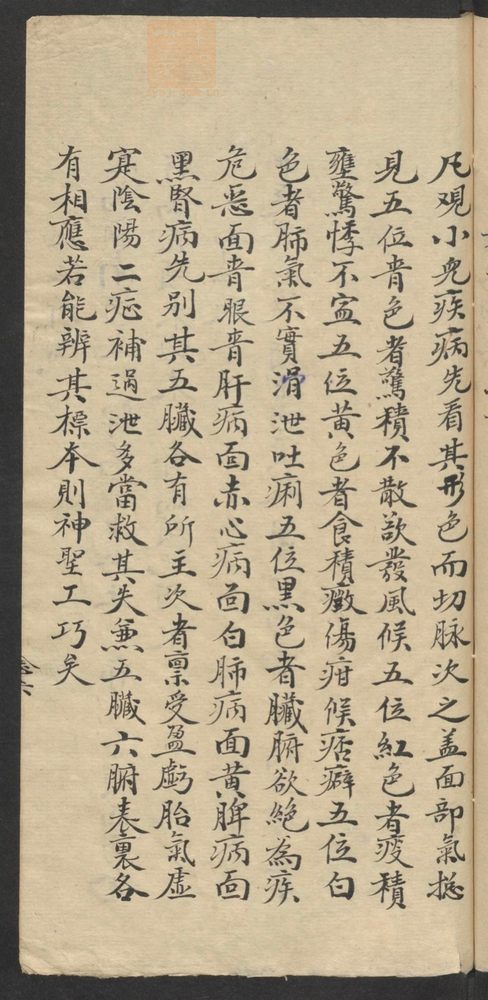 凡观小兒疾病先看其形色而切脉次之盖面部氣摠
見五位青色者驚積不散欲發風候五位紅色者痰積
壅驚悸不寍五位黃色者食積癥傷疳候痞癖五位白
色者肺氣不實滑泄吐痢五位黑色者臟腑欲絕為疾
危惡面青眼青肝病面赤心病面白肺病面黃脾病面
黑腎病先別其五臟各有所主次者禀受盈虧胎氣虛
寔陰陽二症補過泄多當救其失兼五臟六腑表裏各
有相應若能辨其標本則神聖工巧矣